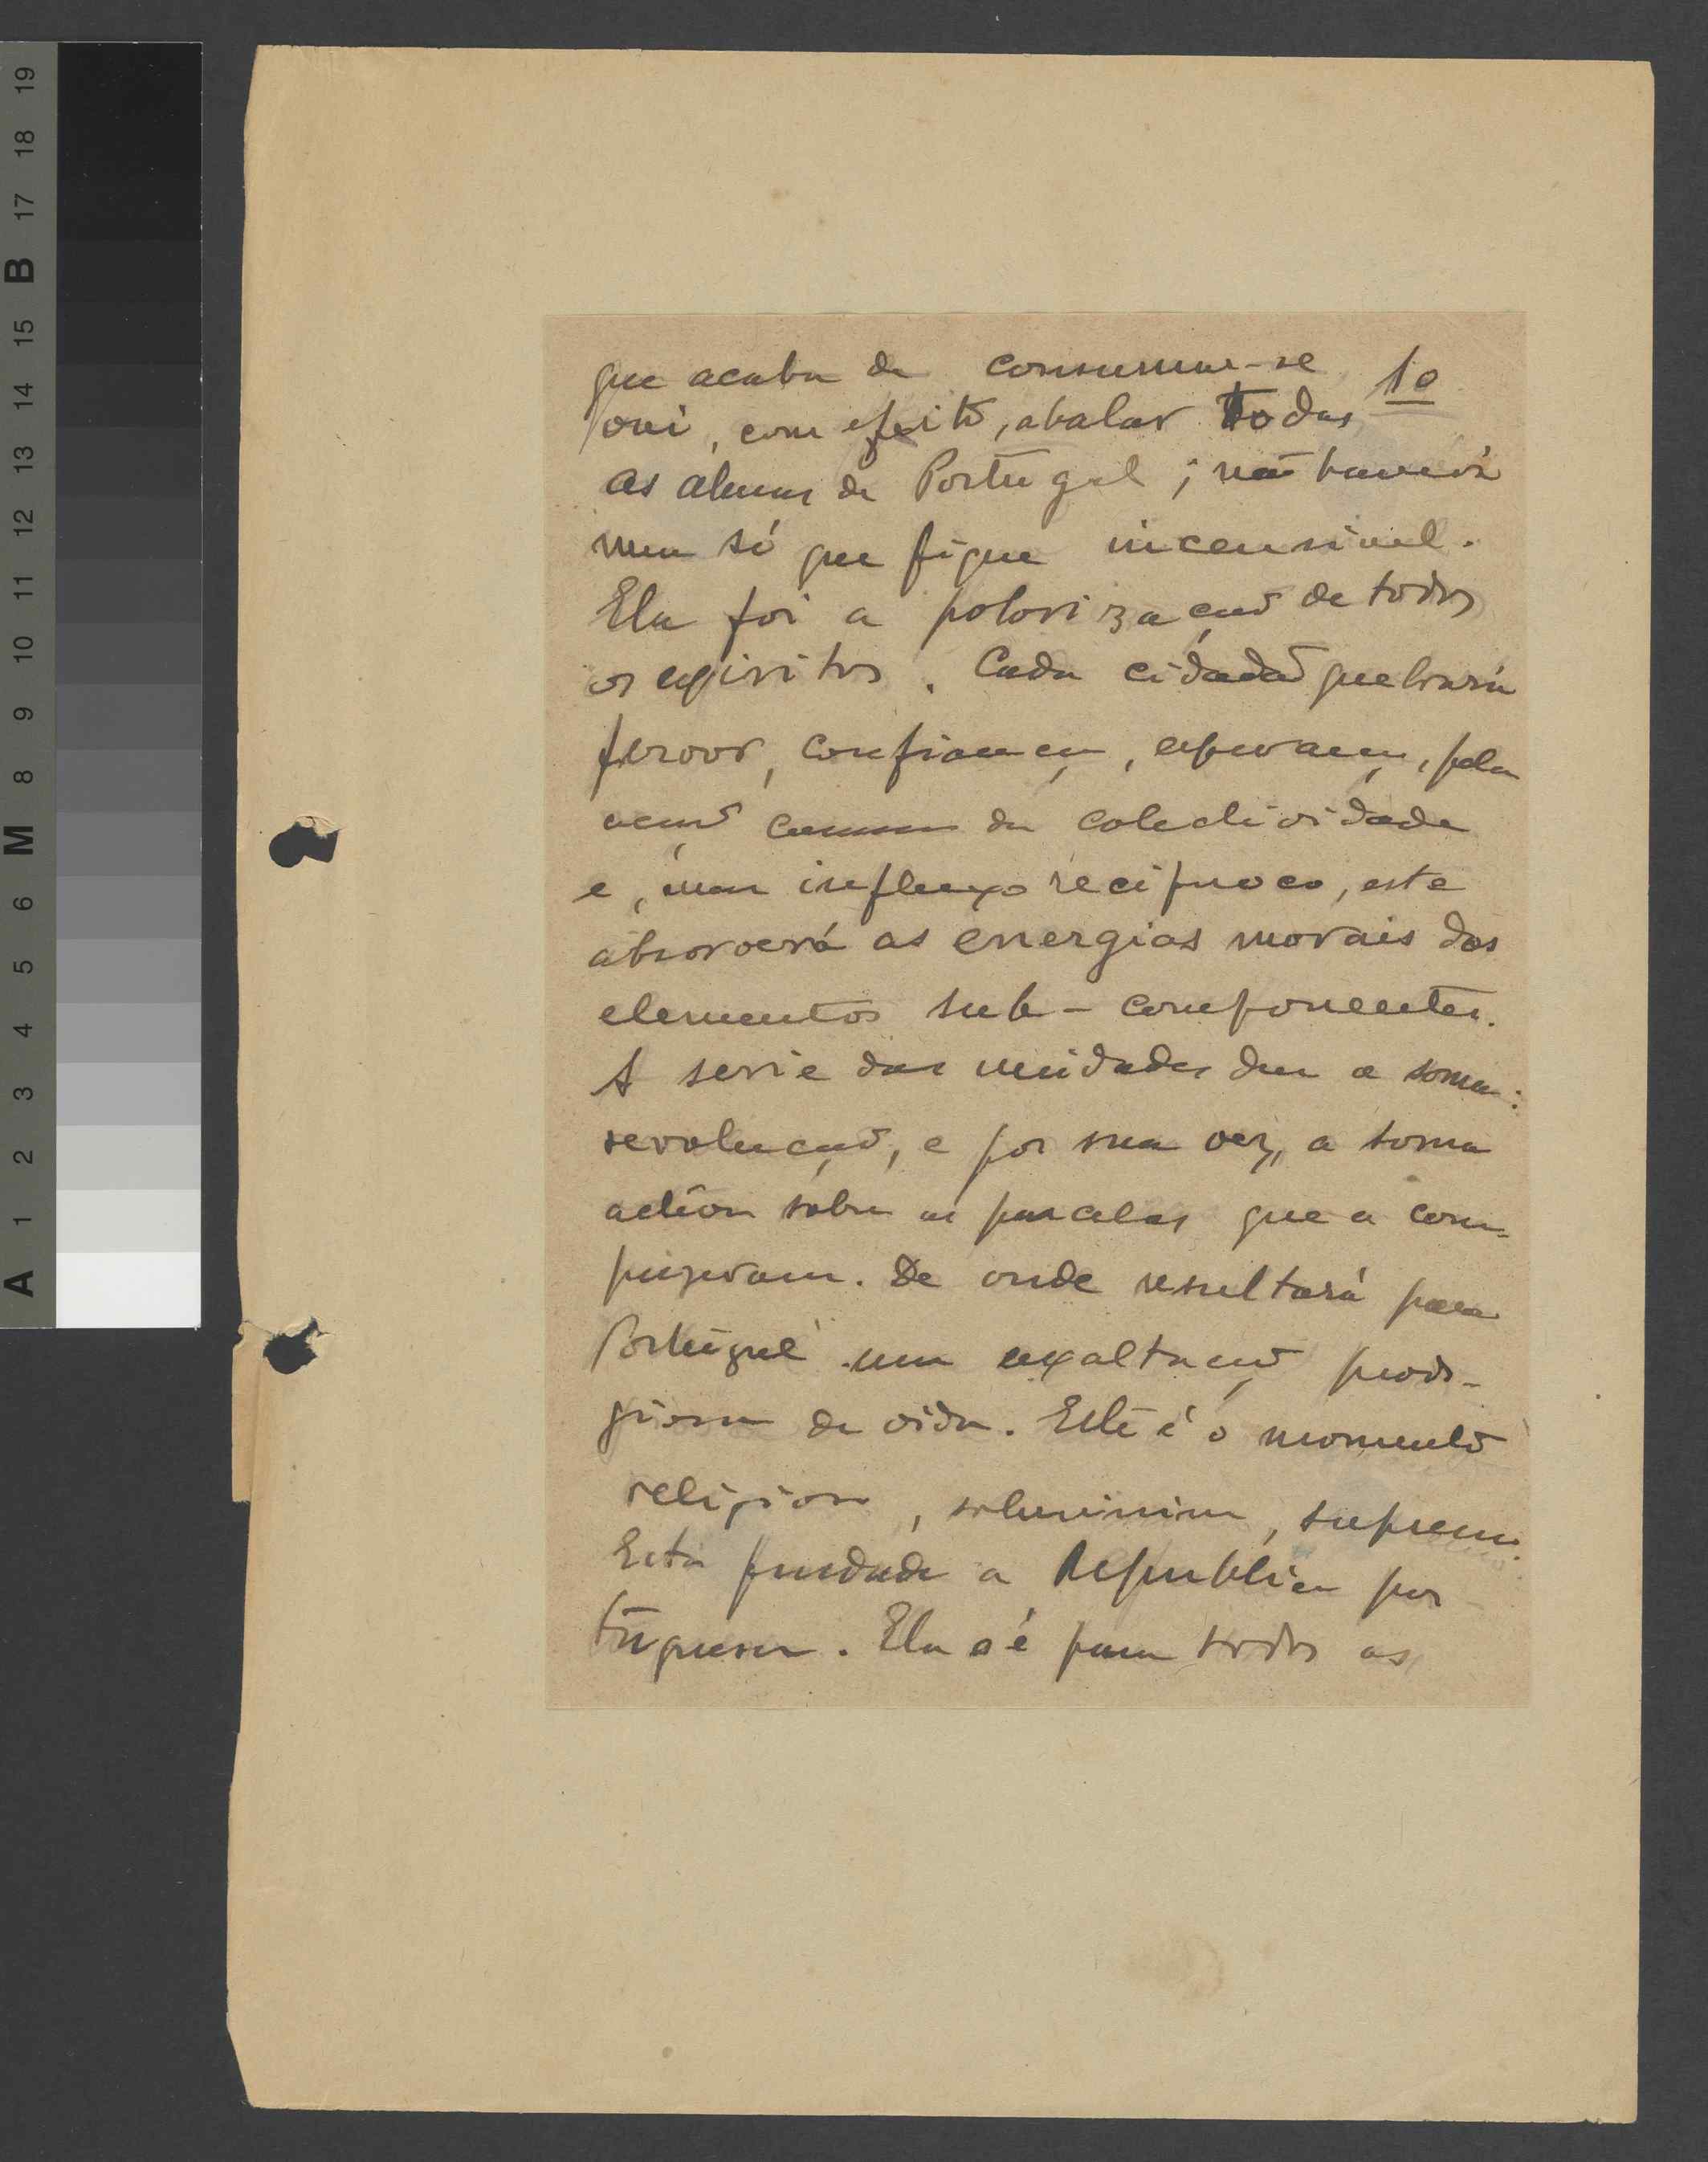 10
que acaba de consumar-se
vai, com efeito, abalar todas
as almas de Portugal; não haverá
uma só que fique incensivel.
Ela foi a polorização de todos
os espiritos. Cada cidadão
fervor, confiança, esperança, pela
acção comum da colectividade
e, num influxo reciproco, esta
absorverá as energias morais dos
elementos sub-componentes.
A serie das unidades deu a soma:
revolução, e por sua vez, a soma
actúa sobre as parcelas que a com-
puzeram. De onde resultará para
Portugal uma exaltação prodi-
giosa de vida. Este é o momento
religioso, soleníssimo, supremo.
Está fundada a Republica por-
tuguesa. Ela é para todos os